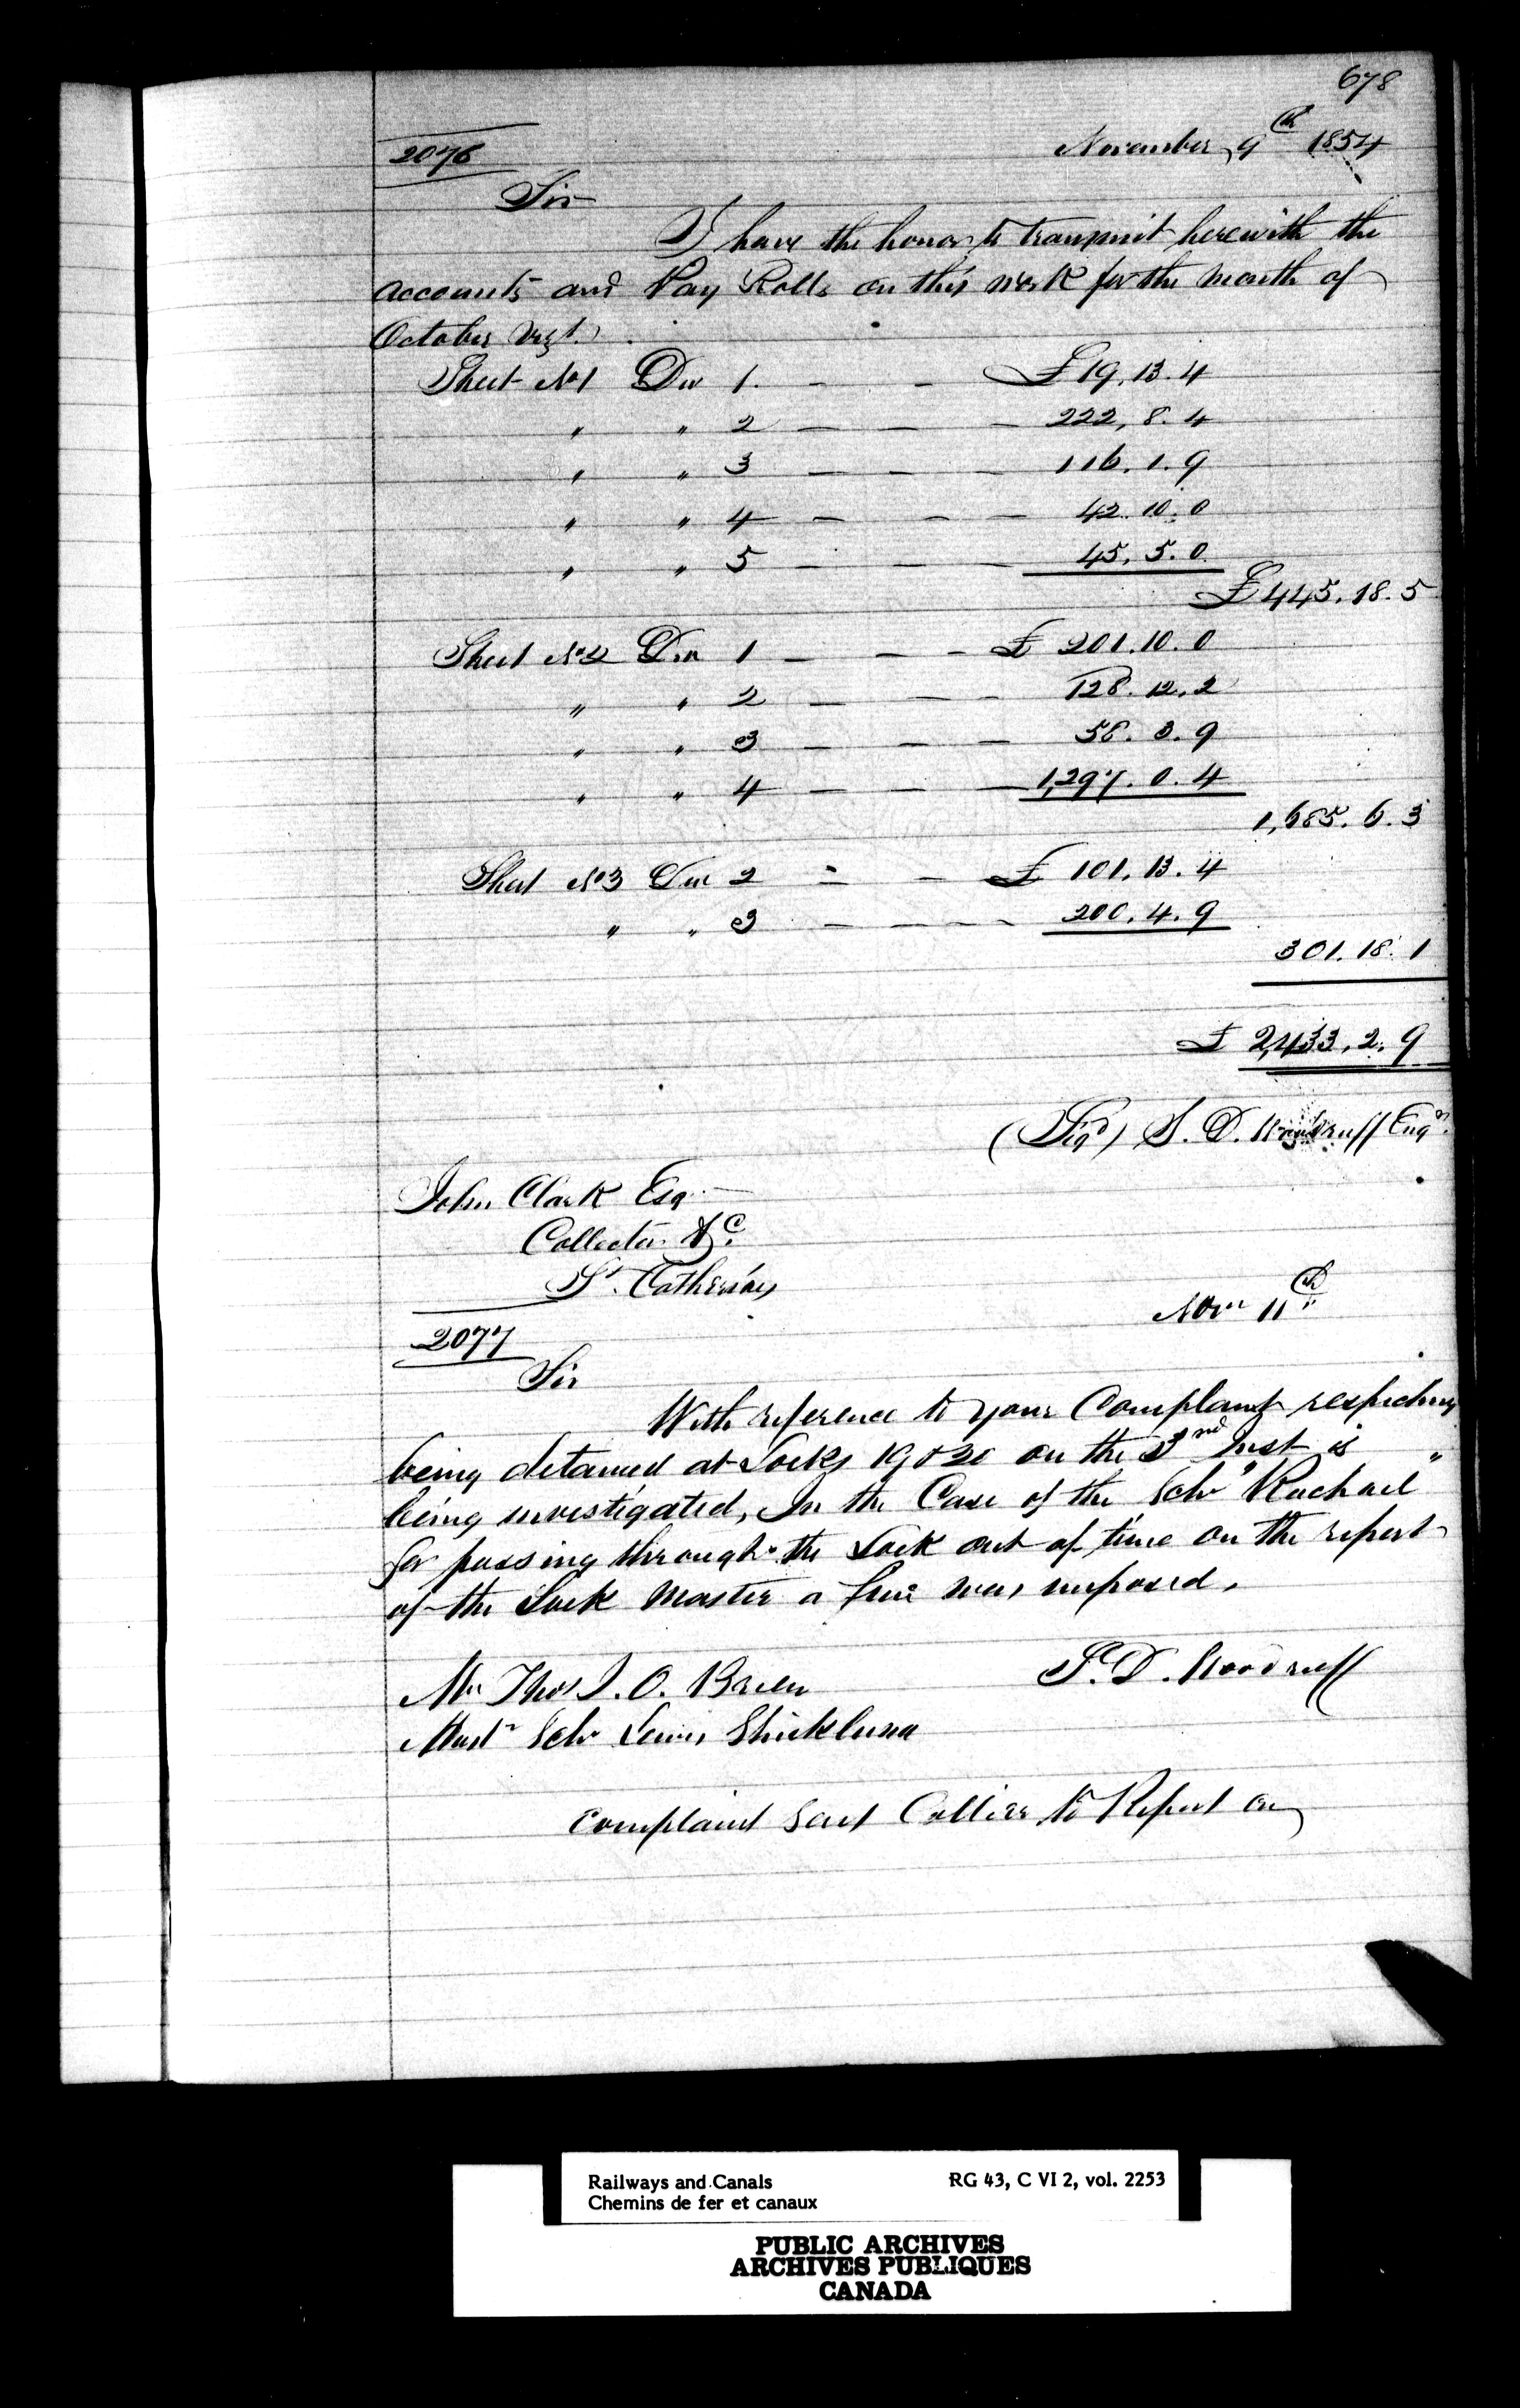 678
2076
November 9th 1854
Sir
I have the honor to transmit herewith the
accounts and Pay Rolls on this work for the month of
October vizt.
Sheet No 1 Div 1. — — £19.13.4
" " 2 — — — 222.8.4
" " 3 — — — 116.1.9
" " 4 — — — 42.10.0
" " 5 — — — 45.5.0
£445.18.5
Sheet No 2 Div 1 — — — £ 201.10.0
" " 2 — — — 128.12.2
" " 3 — — — 58.3.9
" " 4 — — — 1,297.0.4
1,685.6.3
Sheet No 3 Div 2 — — £ 101.13.4
" " 3 — — — — 200.4.9
301.18.1
£ 2,433.2.9
(Sigd) S. D. Woodruff Engr.
John Clark Esq
Collector &c.
St. Catherines
Novr 11th
2077
Sir
With reference to your Complaint respecting
being detained at Locks 19 & 20 on the 3nd Inst is
being investigated, In the Case of the Schr "Rachael"
for passing through the Lock out of time on the report
of the Lock Master a fine was imposed.
S. D. Woodruff
Mr Thos J. O. Brien
Mastr Schr Louis Shickluna
Complaint sent Collier to Report on
Railways and Canals
RG 43, C VI 2, vol. 2253
Chemins de fer et canaux
PUBLIC ARCHIVES
ARCHIVES PUBLIQUES
CANADA